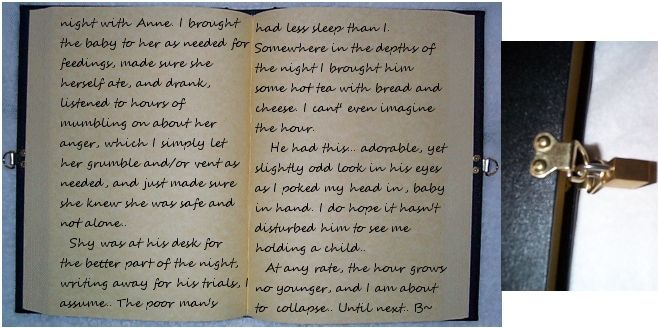 night with Anne. I brought
the baby to her as needed for
feedings, made sure she
herself ate, and drank,
listened to hours of
mumbling on about her
anger, which I simply let
her grumble and/or vent as
needed, and just made sure
she knew she was safe and
not alone..
Shy was at his desk for
the better part of the night,
writing away for his trials, I
assume.. The poor man's
had less sleep than I.
Somewhere in the depths of
the night I brought him
some hot tea with bread and
cheese. I cant' even imagine
the hour.
He had this... adorable, yet
slightly odd look in his eyes
as I poked my head in, baby
in hand. I do hope it hasn't
disturbed him to see me
holding a child..
At any rate, the hour grows
no younger, and I am about
to collapse.. Until next. B~